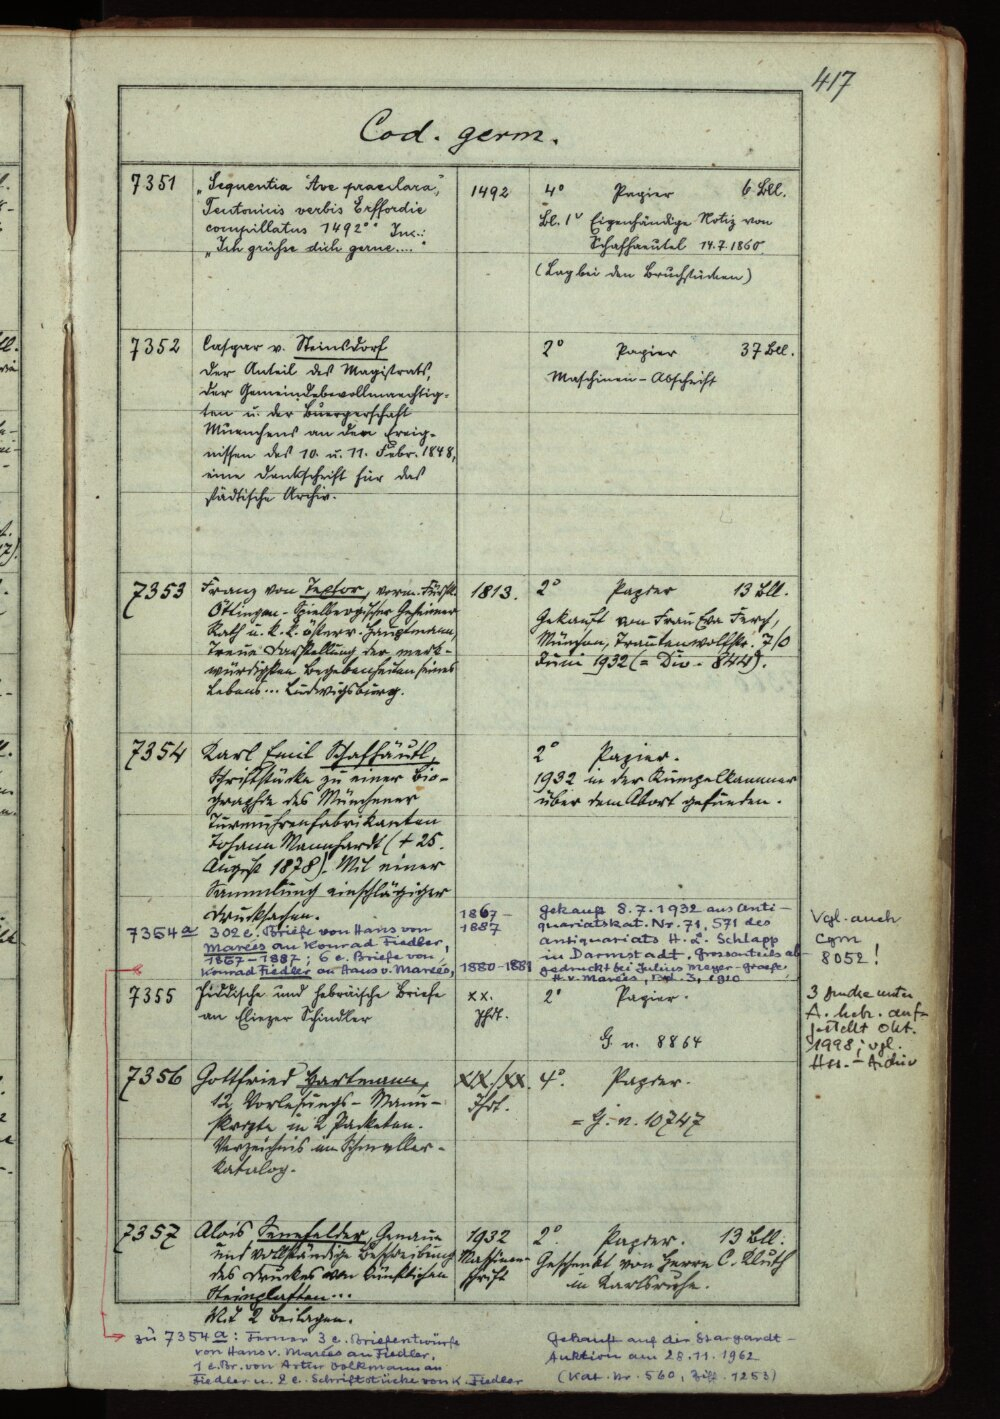 417
Cod. germ.
7351
„Sequentia 'Ave praeclara',
Teutonicis verbis Erffordie
compillatus 1492“ Inc.:
„Ich grüsse dich gerne....“
1492
4° Papier 6 Bll.
Bl. 1v Eigenhändige Notiz von
Schafhaeutel 14.7.1860.
(Lag bei den Bruchstücken)
7352
Caspar v. Steinsdorf
Der Anteil des Magistrats,
der Gemeindebevollmaechtig-
ten u. der Buergerschaft
Muenchens an den Ereig-
nissen des 10. u. 11. Febr. 1848,
eine Denkschrift für das
städtische Archiv.
2° Papier 37 Bll.
Maschinen-Abschrift
7353
Franz von Textor, verm. Fürstl.
Öttingen-Spielbergischer Geheimer
Rath u. k. k. österr. Hauptmann,
Treue Darstellung der merk-
würdigsten Begebenheiten seines
Lebens... Ludwigsburg.
1813.
2° Papier 13 Bll.
Gekauft von Frau Eva
München, Trautenwolfstr. 7/0
Juni 1932 (= Div. 844).
7354
Karl Emil Schafhäutl,
Schriftstücke zu einer Bio-
graphie des Münchener
Turmuhrenfabrikanten
Johann Mannhardt († 25.
August 1878). Mit einer
Sammlung einschlägiger
Drucksachen.
2° Papier.
1932 in der Rumpelkammer
über dem Abort gefunden.
7354a
302 e. Briefe von Hans von
Marées an Konrad Fiedler,
1867–1887; 6 e. Briefe von
Konrad Fiedler an Hans v. Marées,
1867–
1887
1880–1881
gekauft 8.7.1932 aus Anti-
quariatskat. Nr. 71, 571 des
Antiquariats H. L. Schlapp
in Darmstadt, Grossenteils ab-
gedruckt bei Julius Meyer-Graefe,
H. v. Marées, Bd. 3, 1910
Vgl. auch
Cgm
8052!
7355
Jiddische und hebräische Briefe
an Eliezer Schindler
XX.
Jhdt.
2° Papier.
G. n. 8864
3 Drucke unter
A. hebr. auf-
gestellt Okt.
1998; vgl.
Hss.-Archiv
7356
Gottfried Hartmann,
12 Vorlesungs-Manu-
skripte in 2 Packeten.
Verzeichnis im Schmeller-
Katalog.
XIX./XX.
Jhdt.
4°. Papier.
= G. n. 10747
7357
Alois Senefelder, Genaue
und vollständige Beschreibung
des Druckes von künstlichen
Steinplatten...
Mit 2 Beilagen.
1932
Maschinen-
schrift
2°. Papier. 13 Bll.
Geschenkt von Herrn C. Kluth
in Karlsruhe.
zu 7354a: Ferner 3 e. Briefentwürfe
von Hans v. Marées an Fiedler,
1 e. Br. von Artur Volkmann an
Fiedler u. 2 e. Schriftstücke von K. Fiedler
Gekauft auf der Stargardt-
Auktion am 28.11.1962
(Kat. Nr. 560, Ziff. 1253)